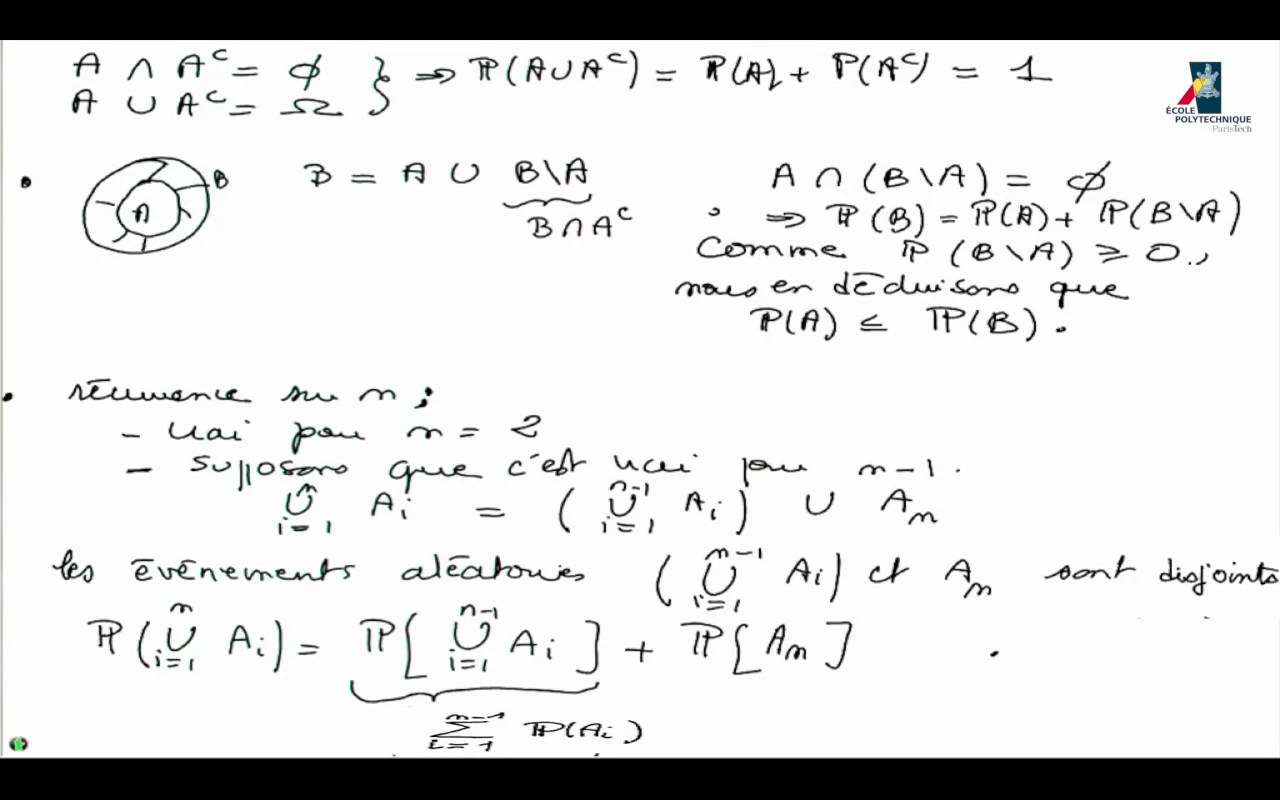 A ∩ Aᶜ = ∅ } ⇒ ℙ(A∪Aᶜ) = ℙ(A) + ℙ(Aᶜ) = 1
A ∪ Aᶜ = Ω
ÉCOLE
POLYTECHNIQUE
ParisTech
• A B
B = A ∪ B\A
B∩Aᶜ
A ∩ (B\A) = ∅
⇒ ℙ(B) = ℙ(A) + ℙ(B\A)
Comme ℙ(B\A) ≥ 0,
nous en déduisons que
ℙ(A) ≤ ℙ(B).
• récurrence sur n ;
- vrai pour n = 2
- supposons que c'est vrai pour n-1.
⋃_{i=1}^{n} A_i = (⋃_{i=1}^{n-1} A_i) ∪ A_n
les événements aléatoires (⋃_{i=1}^{n-1} A_i) et A_n sont disjoints
ℙ(⋃_{i=1}^{n} A_i) = ℙ[⋃_{i=1}^{n-1} A_i] + ℙ[A_n] .
∑_{i=1}^{n-1} ℙ(A_i)